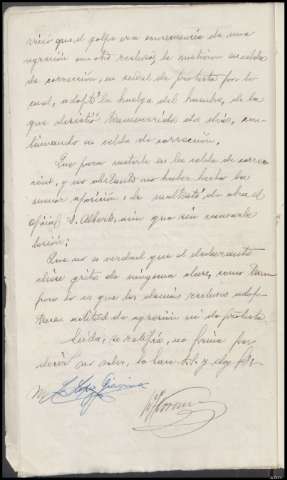 vicio que el golpe era consecuencia de una
agresión con otro recluso, le metieron en celda
de corrección, en señal de protesta por lo
cual, adoptó la huelga del hambre, de la
que desistió transcurridos dos días, con-
tinuando en celda de corrección.
Que para meterle en la celda de correc-
ción, y no obstante no haber hecho la
menor oposición, le maltrató de obra el
oficial S. Alberto, sin que sea causarle
lesión;
Que no es verdad que el declarante
diese gritos de ninguna clase, como tam-
poco lo es que los demás reclusos adop-
taran actitud de agresión ni de protesta
Leída, se ratifica, no firma por
decir no saber, lo hace S.S. y doy fe.